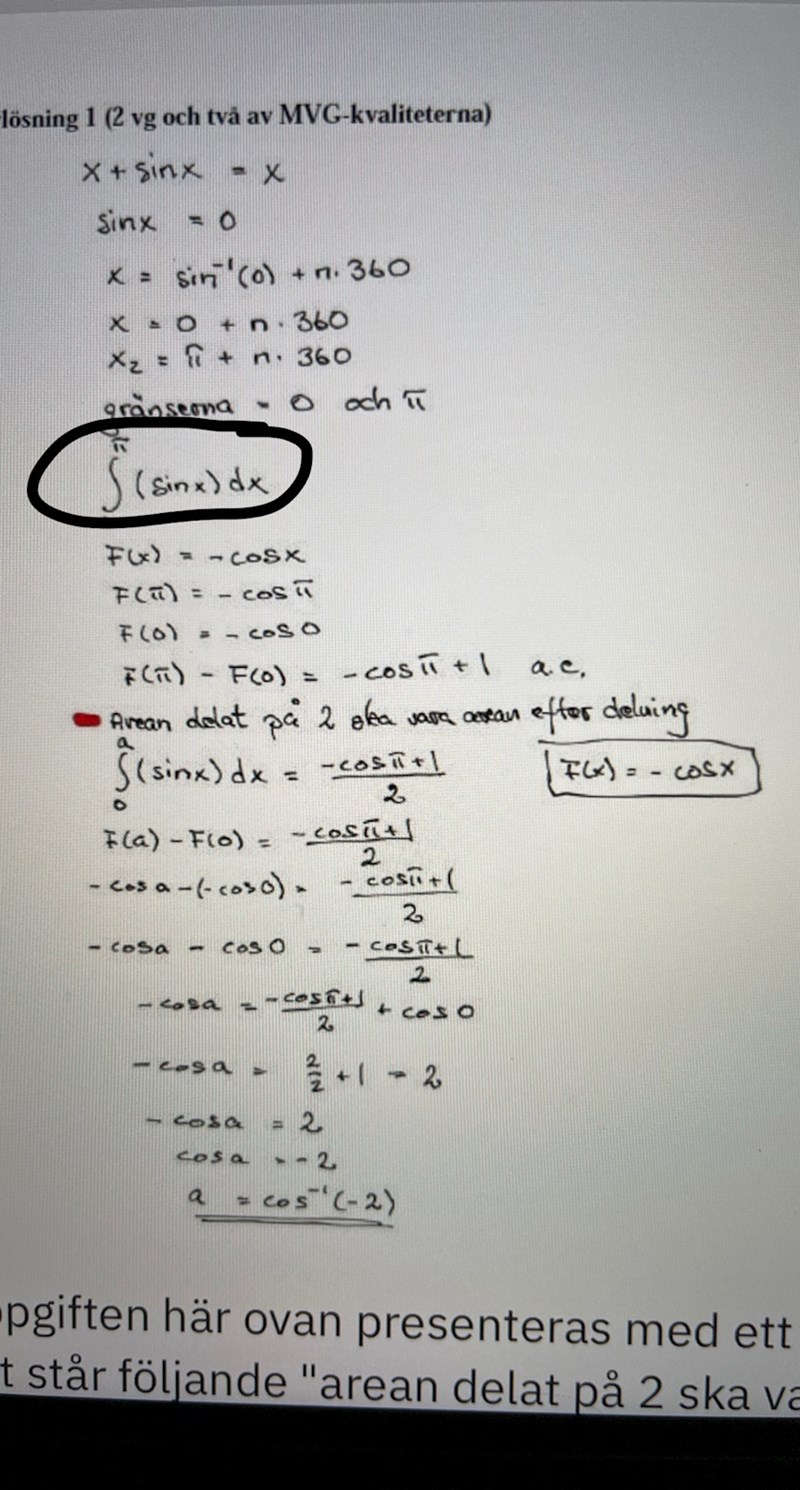 lösning 1 (2 vg och två av MVG-kvaliteterna)
x + sinx = x
sinx = 0
x = sin⁻¹(0) + n. 360
x = 0 + n. 360
x₂ = π + n. 360
gränserna = 0 och π
π
∫(sinx) dx
F(x) = - cosx
F(π) = - cos π
F(0) = - cos 0
F(π) - F(0) = - cos π + 1 a.e.
Arean delat på 2 ska vara arean efter delning
a
∫(sinx) dx = (-cos π + 1)/2
0
F(x) = - cosx
F(a) - F(0) = (-cos π + 1)/2
- cos a - (- cos 0) = (- cos π + 1)/2
- cosa - cos 0 = (- cos π + 1)/2
- cosa = (-cos π + 1)/2 + cos 0
- cosa = 2/2 + 1 = 2
- cosa = 2
cosa = -2
a = cos⁻¹(-2)
pgiften här ovan presenteras med ett
t står följande "arean delat på 2 ska va